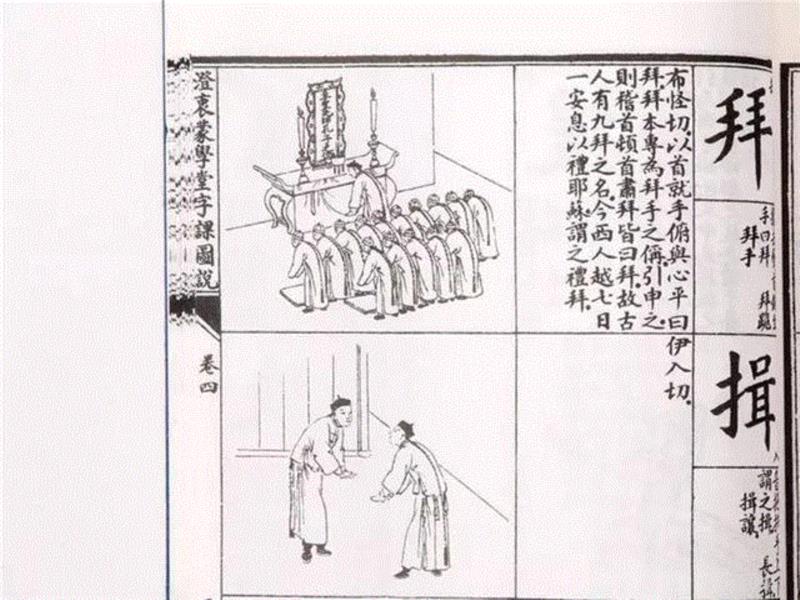 拜
手曰拜 拜跪
拜手
布怪切。以首就手俯與心平曰
拜。拜本專為拜手之稱。引申之。
則稽首頓首肅拜皆曰拜。故古
人有九拜之名。今西人越七日
一安息以禮耶蘇謂之禮拜。
揖
謂之揖 長
揖讓
伊入切。
澄衷蒙學堂字課圖說
卷四